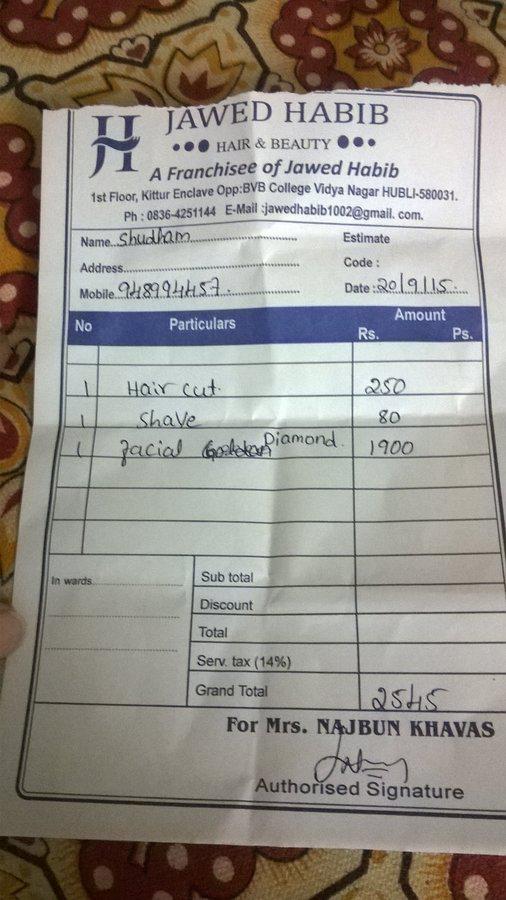 JAWED HABIB
HAIR & BEAUTY
A Franchisee of Jawed Habib
1st Floor, Kittur Enclave Opp:BVB College Vidya Nagar HUBLI-580031.
Ph : 0836-4251144 E-Mail :jawedhabib1002@gmail. com.
Name Shudham Estimate
Address Code :
Mobile Date : 20/9/15
No Particulars Amount
Rs. Ps.
1 Hair cut. 250
1 Shave 80
1 Facial Diamond. 1900
In wards Sub total
Discount
Total
Serv. tax (14%)
Grand Total 2545
For Mrs. NAJBUN KHAVAS
Authorised Signature